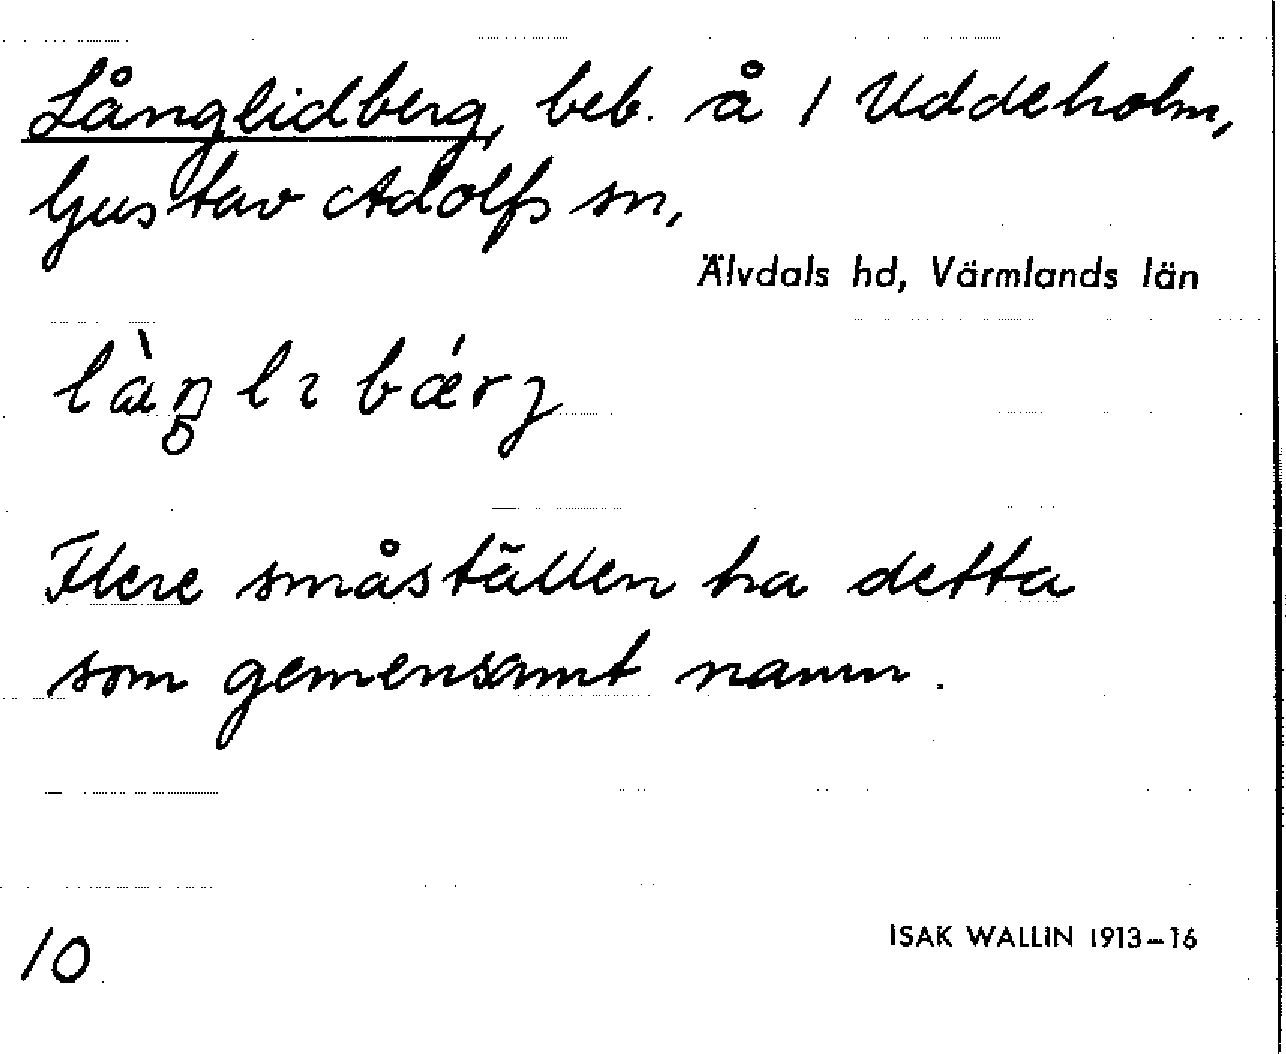 Långlidberg, beb. å 1 Uddeholm,
Gustav Adolfs sn,
Älvdals hd, Värmlands län
Flere småställen ha detta
som gemensamt namn.
10
ISAK WALLIN 1913–16